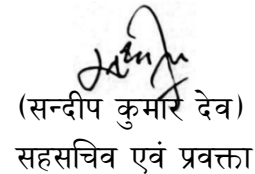 (सन्दीप कुमार देव)
सहसचिव एवं प्रवक्ता